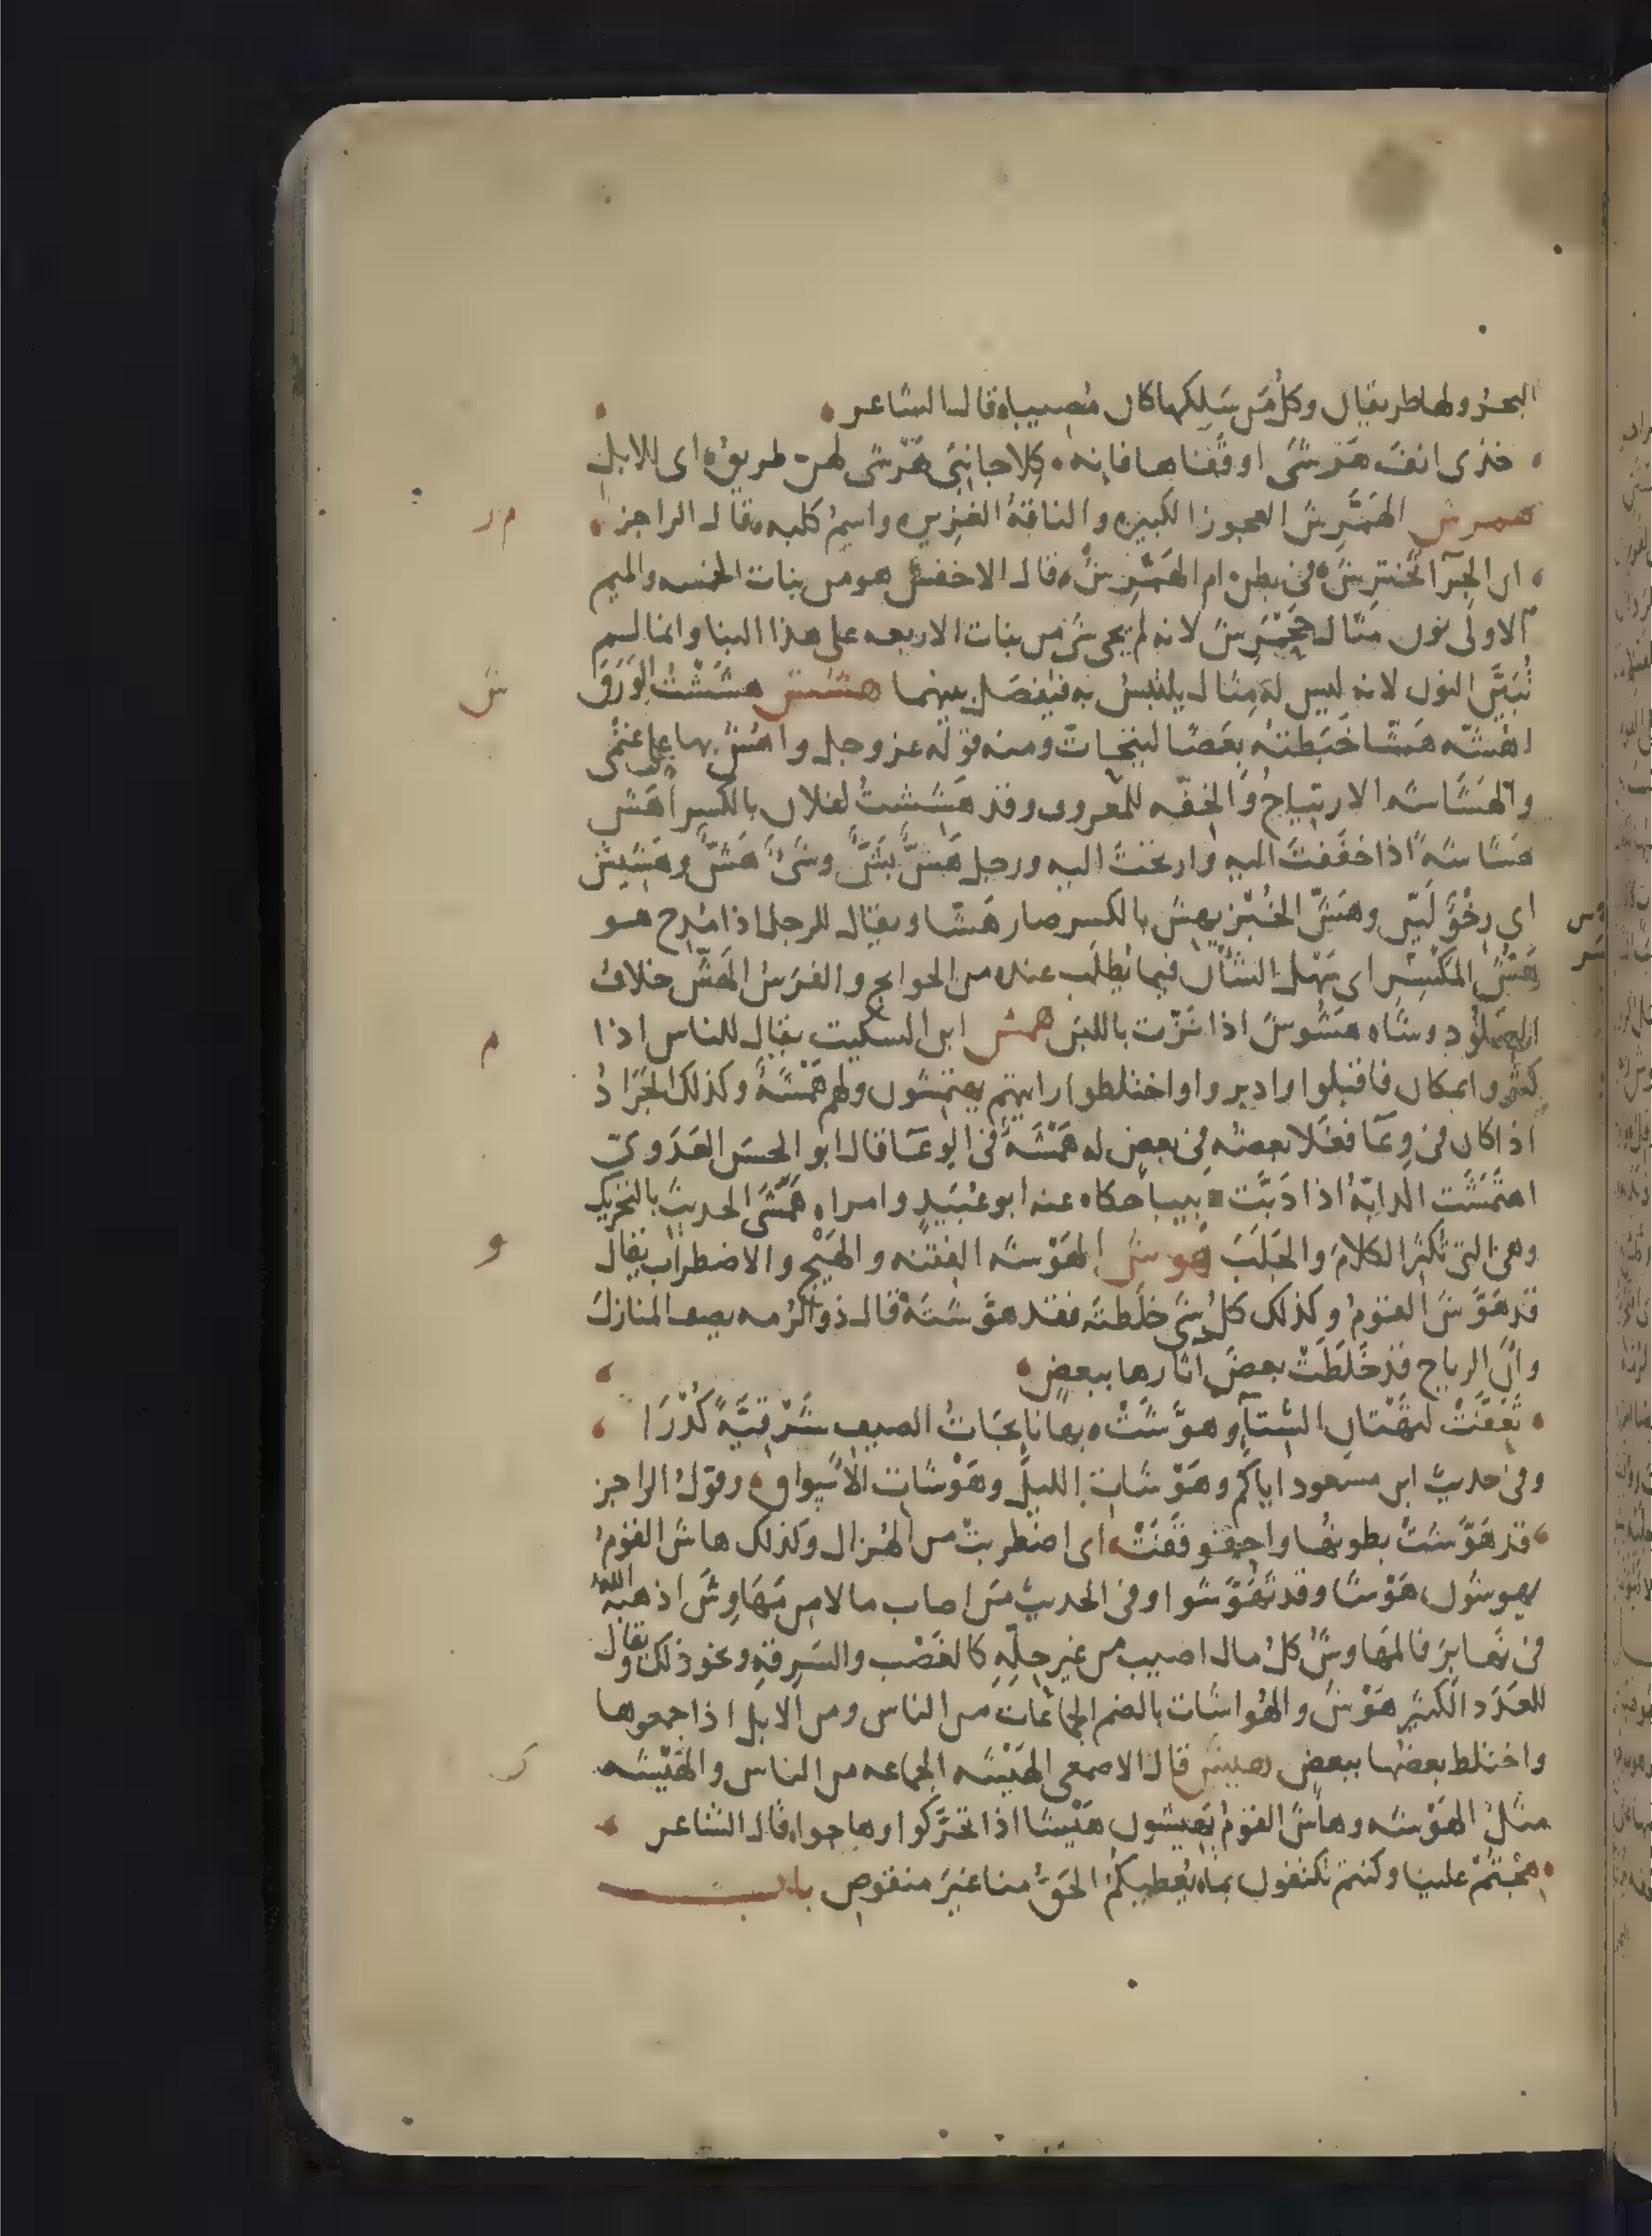 البحر ولها طريقان وكل من سلكها كان مصيبا قال الشاعر
خذى انف هرشى او قفاها فانه كلا جانبى هرشى لهن طريق اى للابل
همرش الهمرش العجوز الكبيره والناقة الغزيره واسم كلبه قال الراجز
ان الجرآ تخترش فى بطن ام الهمرش قال الاخفش هو من بنات الخمسه والميم
الاولى نون مثال جحمرش لانه لم يجى شى من بنات الاربعه على هذا البنا وانما لم
تبين النون لانه ليس له مثال يلتبس به فيفصل بينهما هشش هششت الورق
اهشه هشا خبطته بعصا لينحات ومنه قوله عز وجل واهش بها على غنمى
والهشاشه الارتياح والخفه للمعروف وقد هششت لفلان بالكسر اهش
هشاشة اذا خففت اليه وارتحت اليه ورجل هش بش وشى هش وهشيش
اى رخو لين وهش الخبز يهش بالكسر صار هشا ويقال للرجل اذا مدح هو
هش المكسر اى سهل الشأن فيما يطلب عنده من الحوايج والفرس الهش خلاف
الصلود وشاه هشوش اذا ثرت باللبن همش ابن السكيت يقال للناس اذا
كثروا بمكان فاقبلوا وادبروا واختلطوا رايتهم يهتمشون ولهم همشة وكذلك الجراد
اذا كان فى وعا فغلا بعضه فى بعض له همشة فى الوعا قال ابو الحسن العدوى
اهتمشت الدابة اذا دبت دبيبا حكاه عنه ابو عبيد وامراه همشى الحديث بالتحريك
وهى التى تكثر الكلام والجلب هوش الهوشه الفتنه والهيج والاضطراب يقال
قد هوش القوم وكذلك كل شى خلطته فقد هوشته قال ذو الرمه يصف المنازل
وان الرياح قد خلطت بعض اثارها ببعض
تعفت لتهتان الشتآ وهوشت بها نايجات الصيف شرقية كدرا
وفى حديث ابن مسعود اياكم وهوشات الليل وهوشات الاسواق وقول الراجز
قد هوشت بطونها واحقوقفت اى اضطربت من الهزال وكذلك هاش القوم
يهوشون هوشا وقد تهوشوا وفى الحديث من اصاب مالا من مهاوش اذهبه الله
فى نهابر فالمهاوش كل مال اصيب من غير حله كالغصب والسرقه ونحو ذلك ويقال
للعدد الكثير هوش والهواشات بالضم الجماعات من الناس ومن الابل اذا جمعوها
واختلط بعضها ببعض هيش قال الاصمعى الهيشه الجماعه من الناس والهيشه
مثل الهوشه وهاش القوم يهيشون هيشا اذا تحركوا وهاجوا قال الشاعر
هشتم علينا وكنتم تكتفون بما نعطيكم الحق منا غير منقوص باب